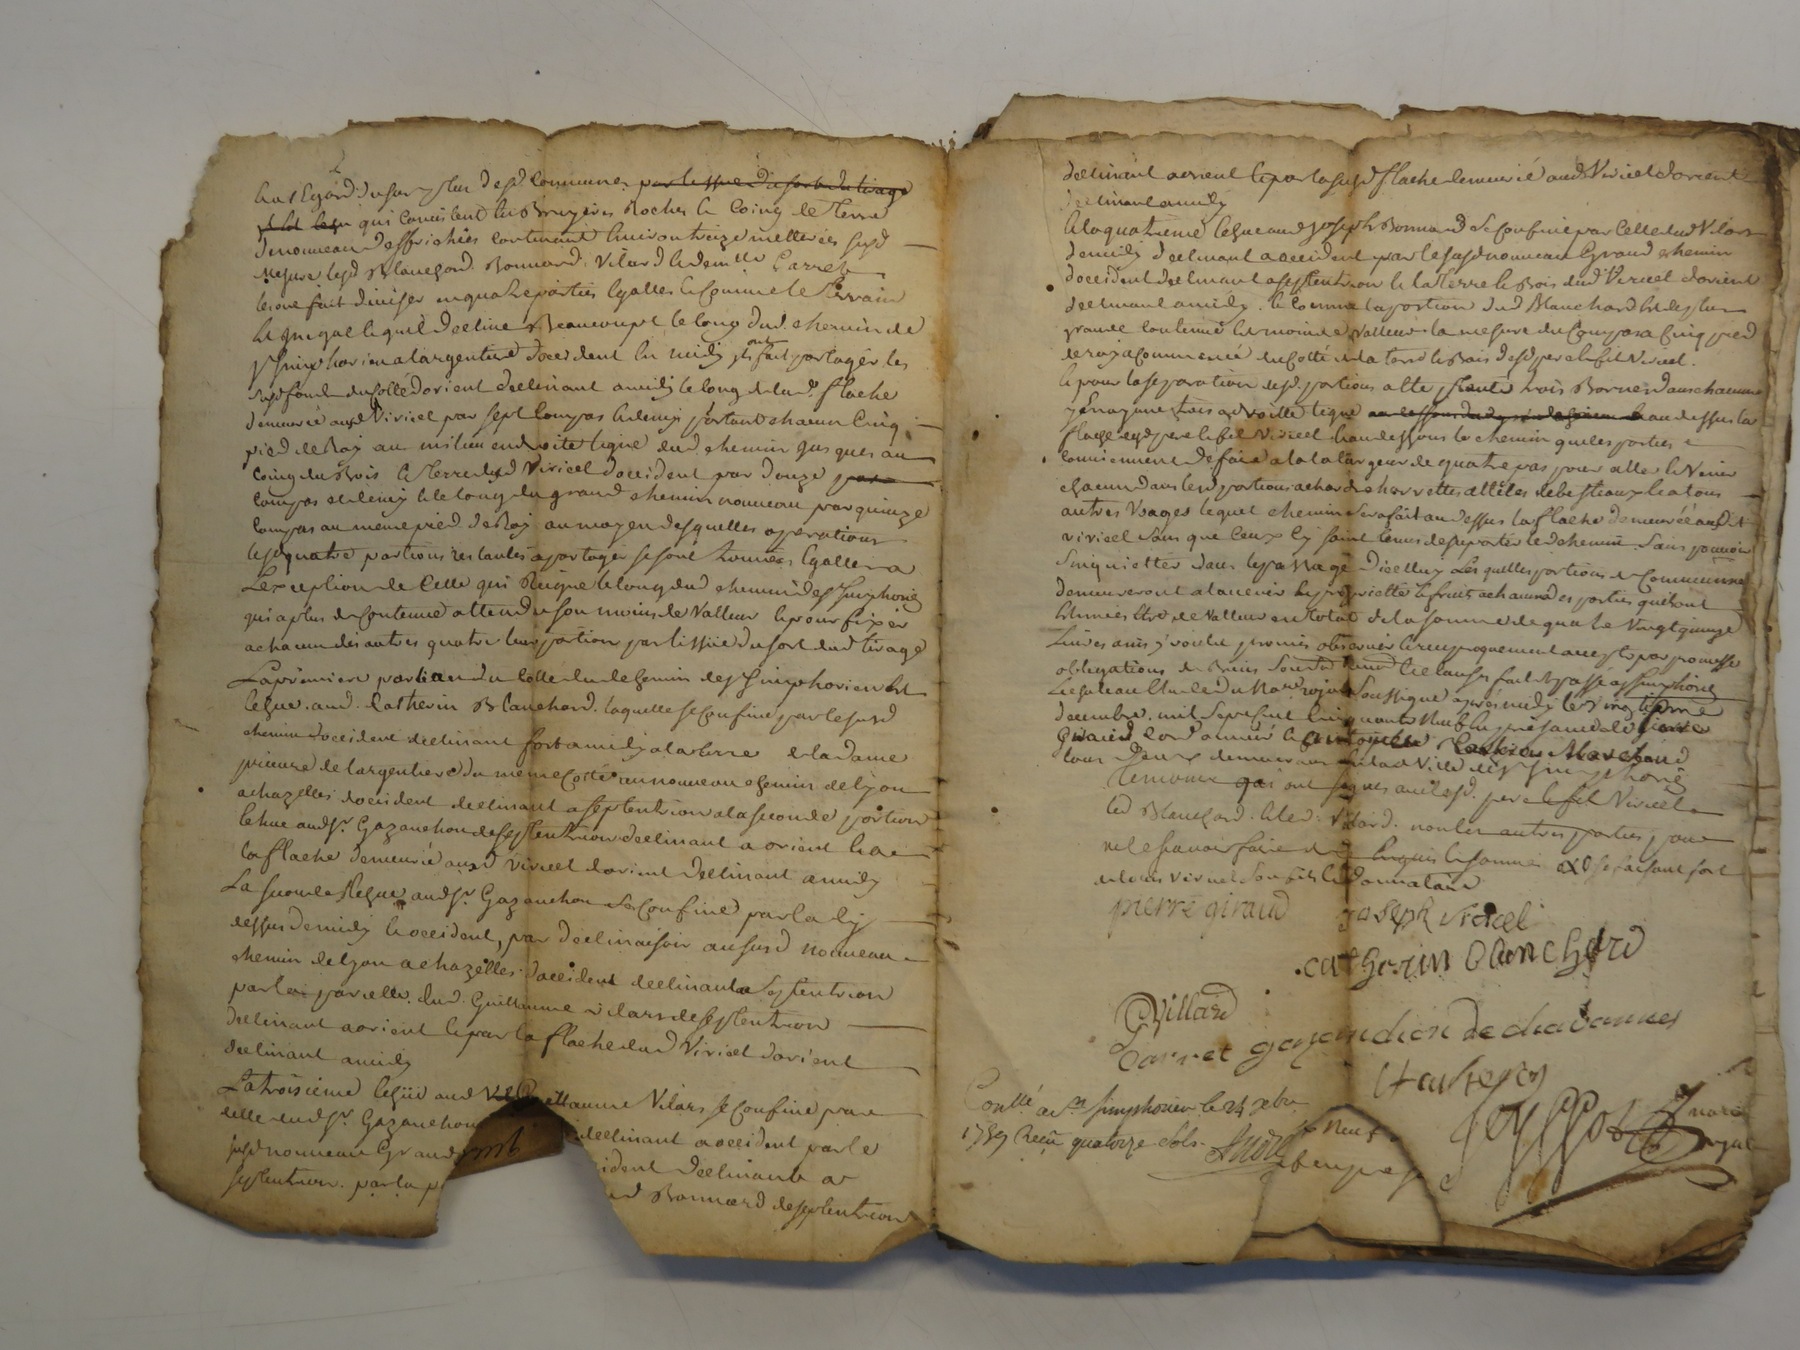 Et a l'Egard du surplus desd. Communes par lissue du sort du tirage
qui consistent en Bruyeres Rocher & Coing de Terre
de nouveau deffrichées contenant Environ treize metterées susd
Mesure lesd Blanchard. Bonnard. Vilard & demlle Carret
les ont fait diviser en quatre parties Egalles & comme le Terrain
Est Inegal lequel decline Beaucoup & le long dud. chemin de
st Simphorien a largentiere d'occident En midy ils ont fait partager les
susd fond du collé d'orient declinant a midy le long de lad. flache
demeurée aud Viricel par sept Compas & demy portant chacun Cinq
pied de Roy au milieu en droite ligne dud chemin jusques au
Coing du Bois & Terre dud Viricel d'occident par douze
Compas et demy & le long du grand chemin nouveau par quinze
Compas au meme pied de Roy au moyen desquelles operations
lesd quatre portions restantes a partager se sont trouvées Egalles a
L'exception de Celle qui Reigne le long dud chemin de st Simphorien
qui a plus de Contenue attendu son moins de Valleur & pour fixer
a chacun des autres quatre leur portion par lissue du sort dud tirage
La premiere portion du collé dud chemin de st Simphorien Est
Echue aud. Catherin Blanchard. laquelle se Confine par le susd
chemin d'occident declinant fort a midy a la terre de la Dame
prieure de largentiere du meme Costé au nouveau chemin de Lyon
a chazelles d'occident declinant a septentrion a la seconde portion
Echue aud Sr. Gazanchon de septentrion declinant a orient & a
la flache demeurée aud viricel d'orient declinant a midy
La seconde Echue aud Sr. Gazanchon se Confine par la Cy
dessus de midy & occident, par declinaison au susd nouveau
chemin de Lyon a chazelles d'occident declinant a Septentrion
par la parcelle dud. Guillaume vilars de septentrion
declinant a orient & par la flache dud Viricel d'orient
declinant a midy
La troisieme Echüe aud Guillaume Vilars se Confine par
celle dud Sr. Gazanchon declinant a occident par le
susd nouveau Grand occident declinant a
septentrion. par la p Bonnard de septentrion
declinant a orient & par la susd flache demeurée aud Viricel d'orient
declinant a midy
Et la quatrieme Echue aud Joseph Bonnard se Confine par Celle dud Vilars
de midy declinant a occident par le susd nouveau Grand chemin
d'occident declinant a septentrion & la Terre & Bois dud Viricel d'orient
declinant a midy. & Comme la portion dud Blanchard Est de plus
grande Contenue & moindre Valleur la mesure du Compas a Cinq pied
de roy a Commencé du Collé de la terre & Bois desd pere & fil Viricel.
Et pour la separation desd. portions a Eté planté trois Bornes dans chacune
ligne au dessus la
flache desd pere & fil Viricel & au dessous le chemin que les parties
Conviennent de faire a la largeur de quatre pas pour aller & Venir
chacun dans lesd portions a char & charrettes attelés de bestiaux & a tous
autres Usages lequel chemin sera fait au dessus la flache demeurée aud
viricel sans que Ceux Cy soient tenus de suporter led chemin Sans pouvoir
s'inquietter dans le passage d'icelluy Lesquelles portions de Communes
demeureront a l'avenir En proprietté & fruits a chacune des parties qui ont
Estimées Etre de Valleur en total de la somme de quatre Vingt quinze
Livres ainsy voulu promis observer & reciproquement accepté par promesse
obligations de Biens Soum. Renon. & Clauses fait & passé a st Simphorien
Le chateau Etude du Nore royal Soussigné apres midy le vingtieme
decembre. mil Sept Cent Cinquante Neuf En presence de pierre
Giraud
tous deux demeurant aud Ville de st Simphorien
temoins qui ont signés avec lesd. pere & fil Viricel
led Blanchard. & led. Vilard. non les autres parties pour
ne le scavoir faire de ce Enquis & sommé se faisant fort
de Louis Viricel son fils & donataire
pierre giraud joseph viricel
catherin blanchard
Villard
Carret gazanchon de chavannes
Conllé a St Simphorien le 24 xbre
1759 Reçu quatorze sols